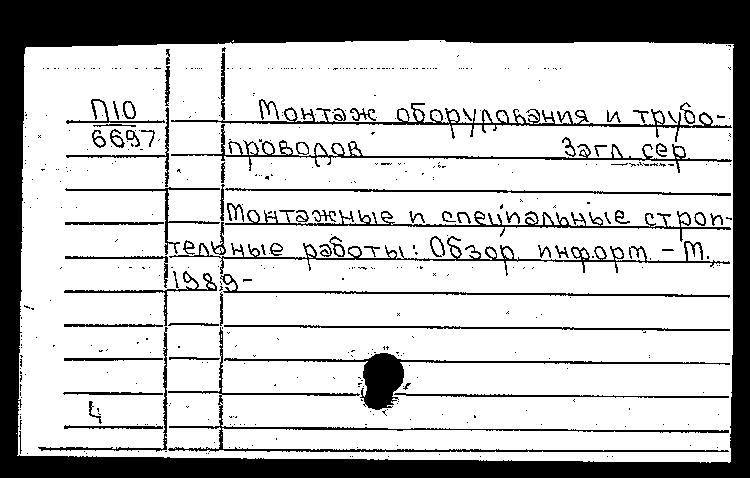 П10
6697
Монтаж оборудования и трубо-
проводов Загл. сер
Монтажные и специальные строи-
тельные работы: Обзор. информ. – М.,
1989-
4